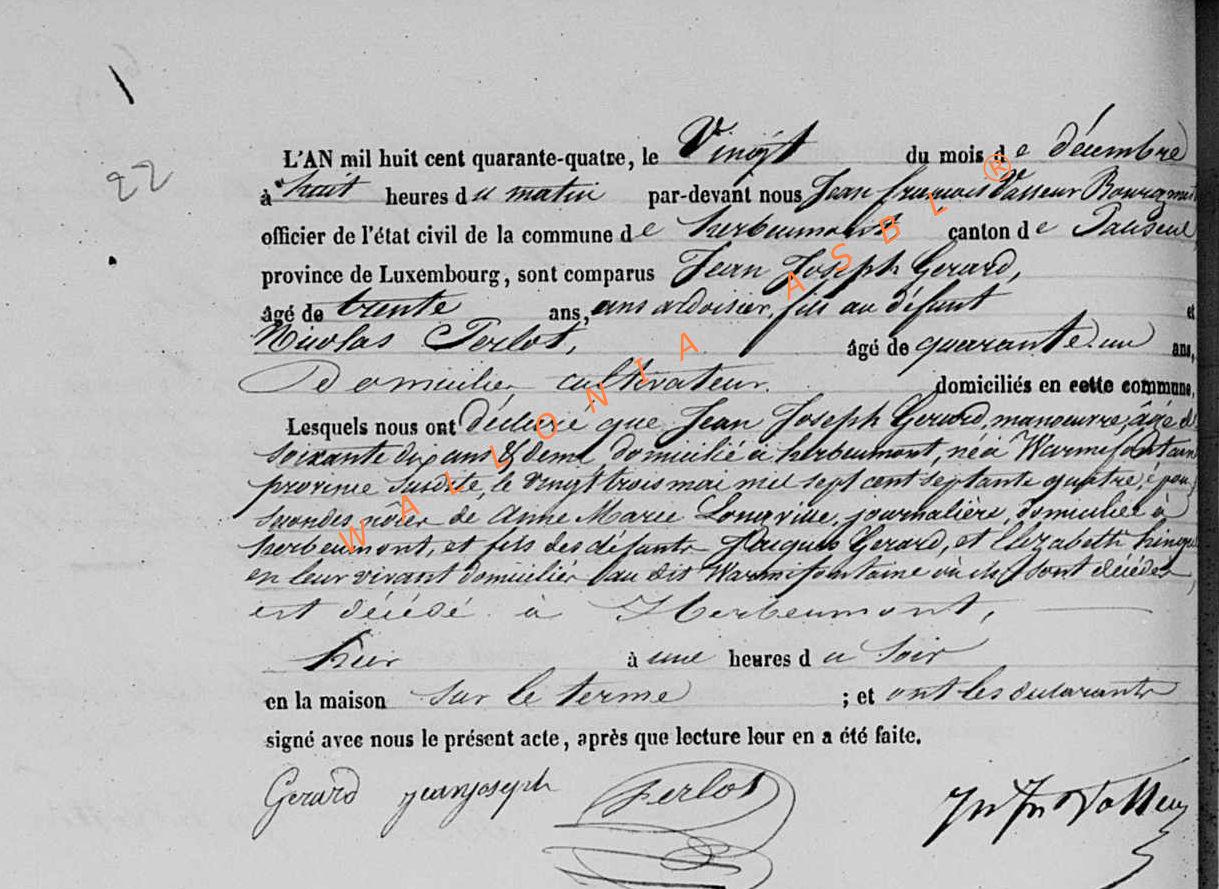 22
L'AN mil huit cent quarante-quatre, le Vingt du mois de décembre
à huit heures du matin par-devant nous Jean françois Vasseur Bourgmes
officier de l'état civil de la commune de herbeumont canton de Paliseul
province de Luxembourg, sont comparus Jean Joseph Gerard,
âgé de trente ans, ans ardoisier, fils au défunt et
Nicolas Perlot, âgé de quarante-un ans,
Domicilier cultivateur. domiciliés en cette commune,
Lesquels nous ont déclaré que Jean Joseph Gerard, manoeuvre, âgé de
soixante dix ans & demi domicilié à herbeumont, né à Warmifontaine
province susdite, le vingt trois mai mil sept cent septante quatre, époux
secondes nôces de Anne Marie Longville, journalière, domiciliée à
herbeumont, et fils des défunts Jacques Gerard, et Elizabeth
en leur vivant domiciliés au dit Warmifontaine où ils sont décédés,
est décédé à Herbeumont,
hier à une heures du soir
en la maison sur le terme ; et ont les declarants
signé avec nous le présent acte, après que lecture leur en a été faite.
Gerard jean joseph Perlot Jn Fn Vasseur
WALLONIA ASBL ®